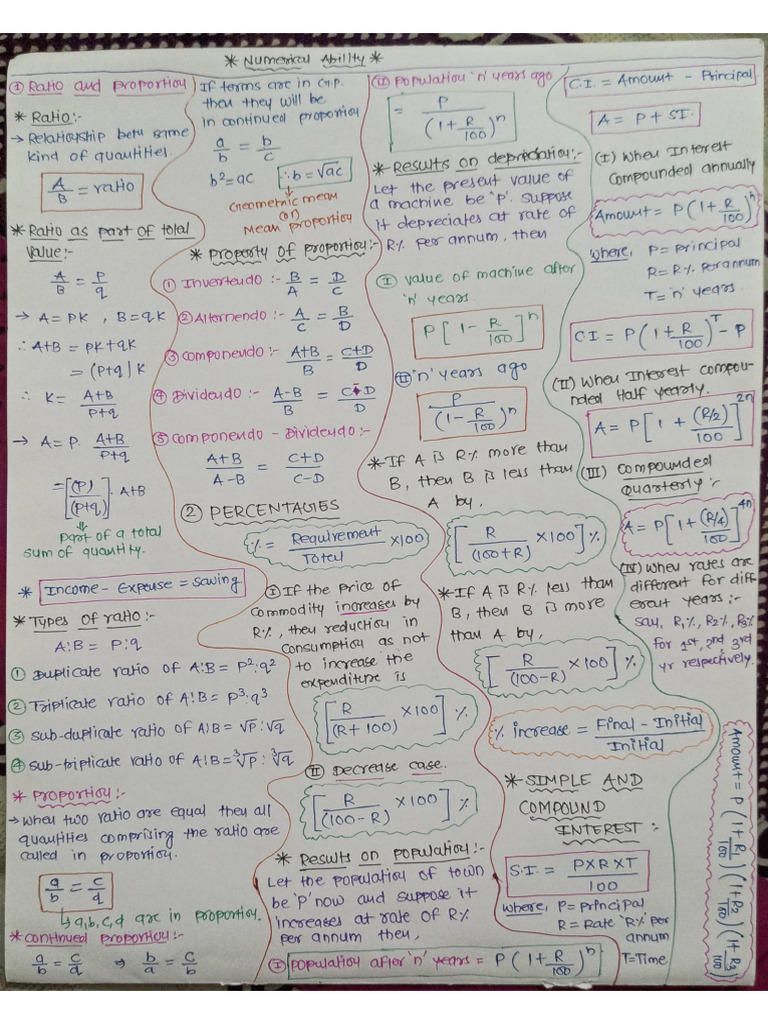 * Numerical Ability *
① Ratio and proportion
* Ratio:-
→ Relationship betn same
kind of quantities.
A/B = ratio
* Ratio as part of total
value:-
A/B = P/q
→ A = PK , B = qK
∴ A+B = PK+qK
= (P+q)K
∴ K = A+B/P+q
→ A = P. A+B/P+q
= [(P)/(P+q)] . A+B
part of a total
sum of quantity.
* Income - Expense = saving
* Types of ratio:-
A:B = P:q
① Duplicate ratio of A:B = P²:q²
② Triplicate ratio of A:B = P³:q³
③ sub-duplicate ratio of A:B = √P : √q
④ sub-triplicate ratio of A:B = ∛P : ∛q
* Proportion:-
→ when two ratio are equal then all
quantities comprising the ratio are
called in proportion.
a/b = c/d
↳ a,b,c,d are in proportion.
* continued proportion:-
a/b = c/d ⇒ b/a = c/b
If terms are in G.P.
then they will be
in continued proportion
a/b = b/c
b² = ac ∴ b = √ac
Geometric mean
(or)
Mean proportion
* Property of proportion:-
① Invertendo :- B/A = D/C
② Alternendo :- A/C = B/D
③ componendo :- A+B/B = C+D/D
④ Dividendo :- A-B/B = C-D/D
⑤ componendo - Dividendo :-
A+B/A-B = C+D/C-D
② PERCENTAGES
% = Requirement/Total × 100
Ⓘ If the price of
commodity increases by
R%, then reduction in
consumption as not
to increase the
expenditure is
[R/(R+100) × 100] %
Ⅱ Decrease case.
[R/(100-R) × 100] %
* Results on population:-
Let the population of town
be 'P' now and suppose it
increases at rate of R%
per annum then,
Ⓘ population after 'n' years = P(1+R/100)ⁿ
Ⅱ Population 'n' years ago
= P/(1+R/100)ⁿ
* Results on depreciation:-
Let the present value of
a machine be 'P'. suppose
it depreciates at rate of
R% per annum, then
Ⓘ value of machine after
'n' years.
P[1 - R/100]ⁿ
Ⅱ 'n' years ago
P/(1 - R/100)ⁿ
* If A is R% more than
B, then B is less than
A by,
[R/(100+R) × 100] %
* If A is R% less than
B, then B is more
than A by,
[R/(100-R) × 100] %
% increase = Final - Initial/Initial
* SIMPLE AND
COMPOUND
INTEREST :-
S.I. = P×R×T/100
where, P = Principal
R = Rate 'R'% per
annum
T = Time
C.I. = Amount - Principal
A = P + SI.
(I) When Interest
compounded annually
Amount = P(1+R/100)ⁿ
where, P = Principal
R = R% per annum
T = 'n' years.
CI = P(1+R/100)ᵀ - P
(II) When Interest compou-
nded Half yearly.
A = P[1 + (R/2)/100]²ⁿ
(III) compounded
Quarterly :-
A = P[1 + (R/4)/100]⁴ⁿ
(IV) When rates are
different for diff
erent years :-
say, R₁%, R₂%, R₃%
for 1st, 2nd, 3rd
yr respectively.
Amount = P(1+R₁/100)(1+R₂/100)(1+R₃/100)